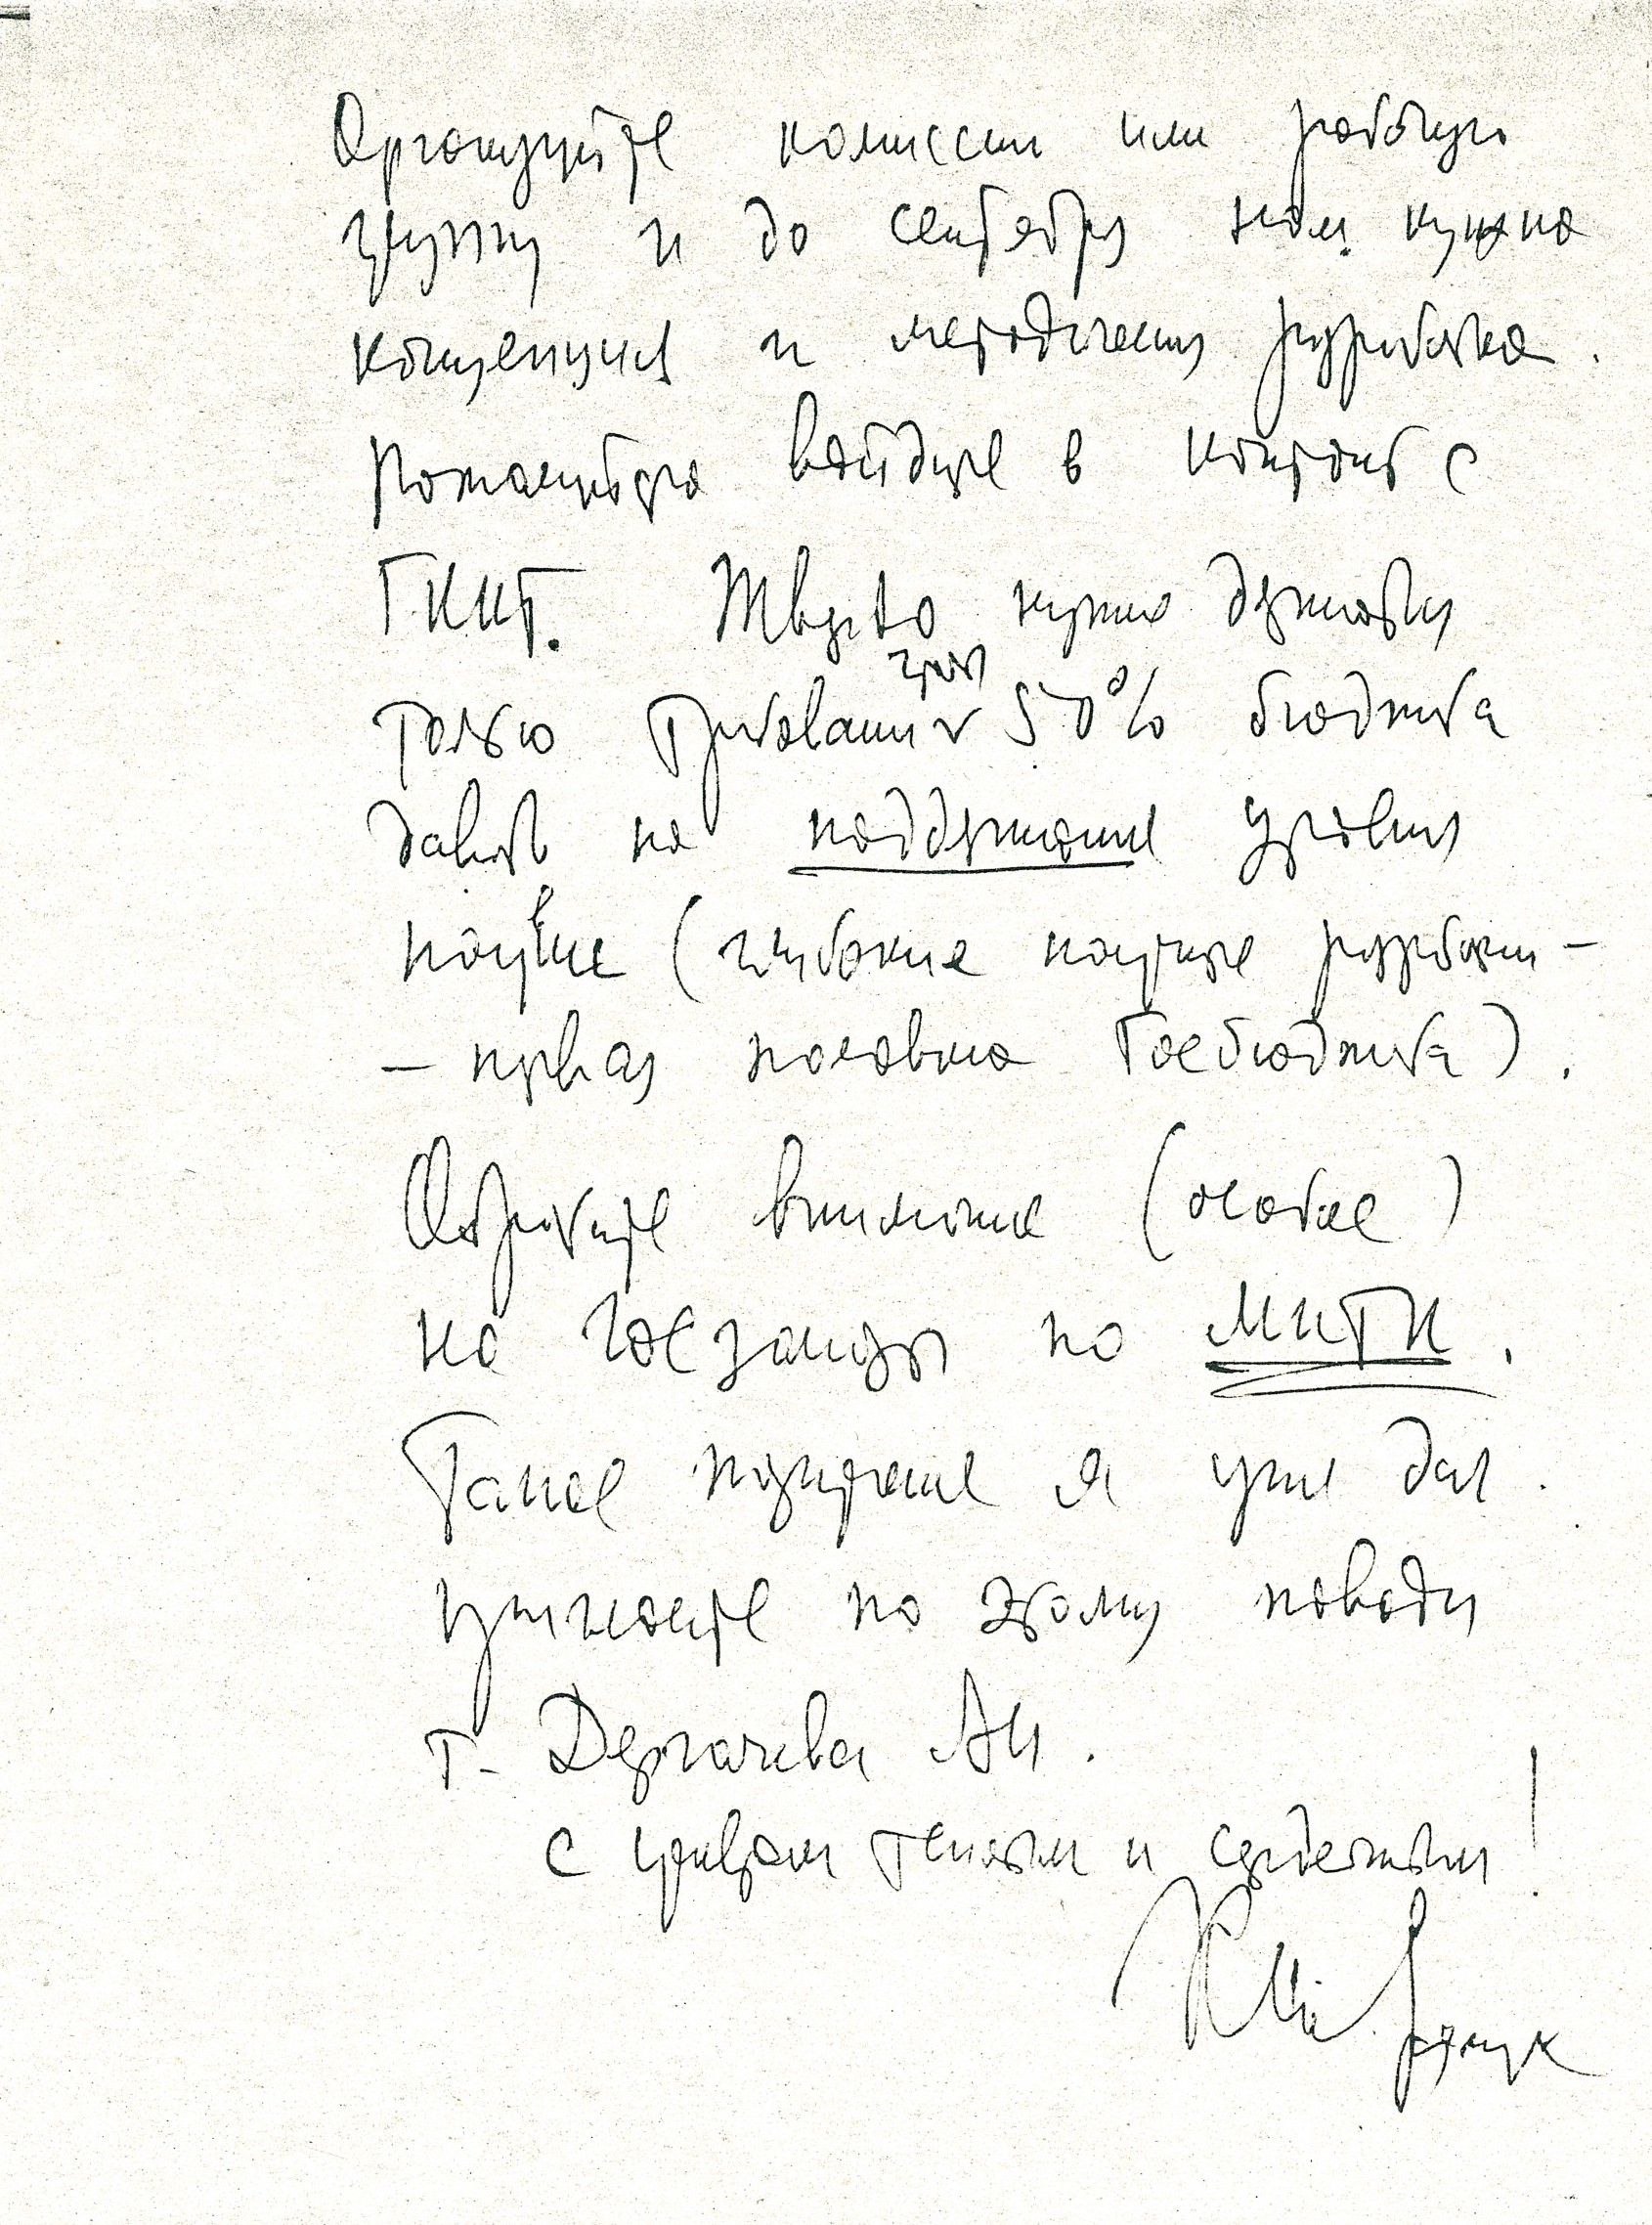 Организуйте комиссии или рабочую
группу и до сентября нам нужна
концепция и методическая разработка.
Пожалуйста войдите в контакт с
ГКНТ. Твердо нужно держаться
только требования 50% бюджета
давать на поддержание уровня
науки (глубокие научные разработки –
– первая половина Госбюджета).
Обратите внимание (особое)
на Госзаказ по МНТК.
Такое поручение я уже дал.
по этому поводу
т. Дергачева АН.
с приветом и сердечности!